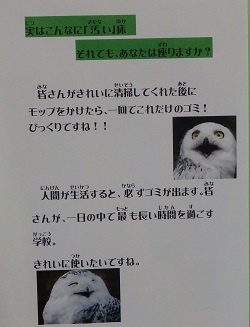 実はこんなに『汚い』床
それでも、あなたは座りますか？
皆さんがきれいに清掃してくれた後に
モップをかけたら、一回でこれだけのゴミ！
びっくりですね！！
人間が生活すると、必ずゴミが出ます。皆
さんが、一日の中で最も長い時間を過ごす
学校。
きれいに使いたいですね。